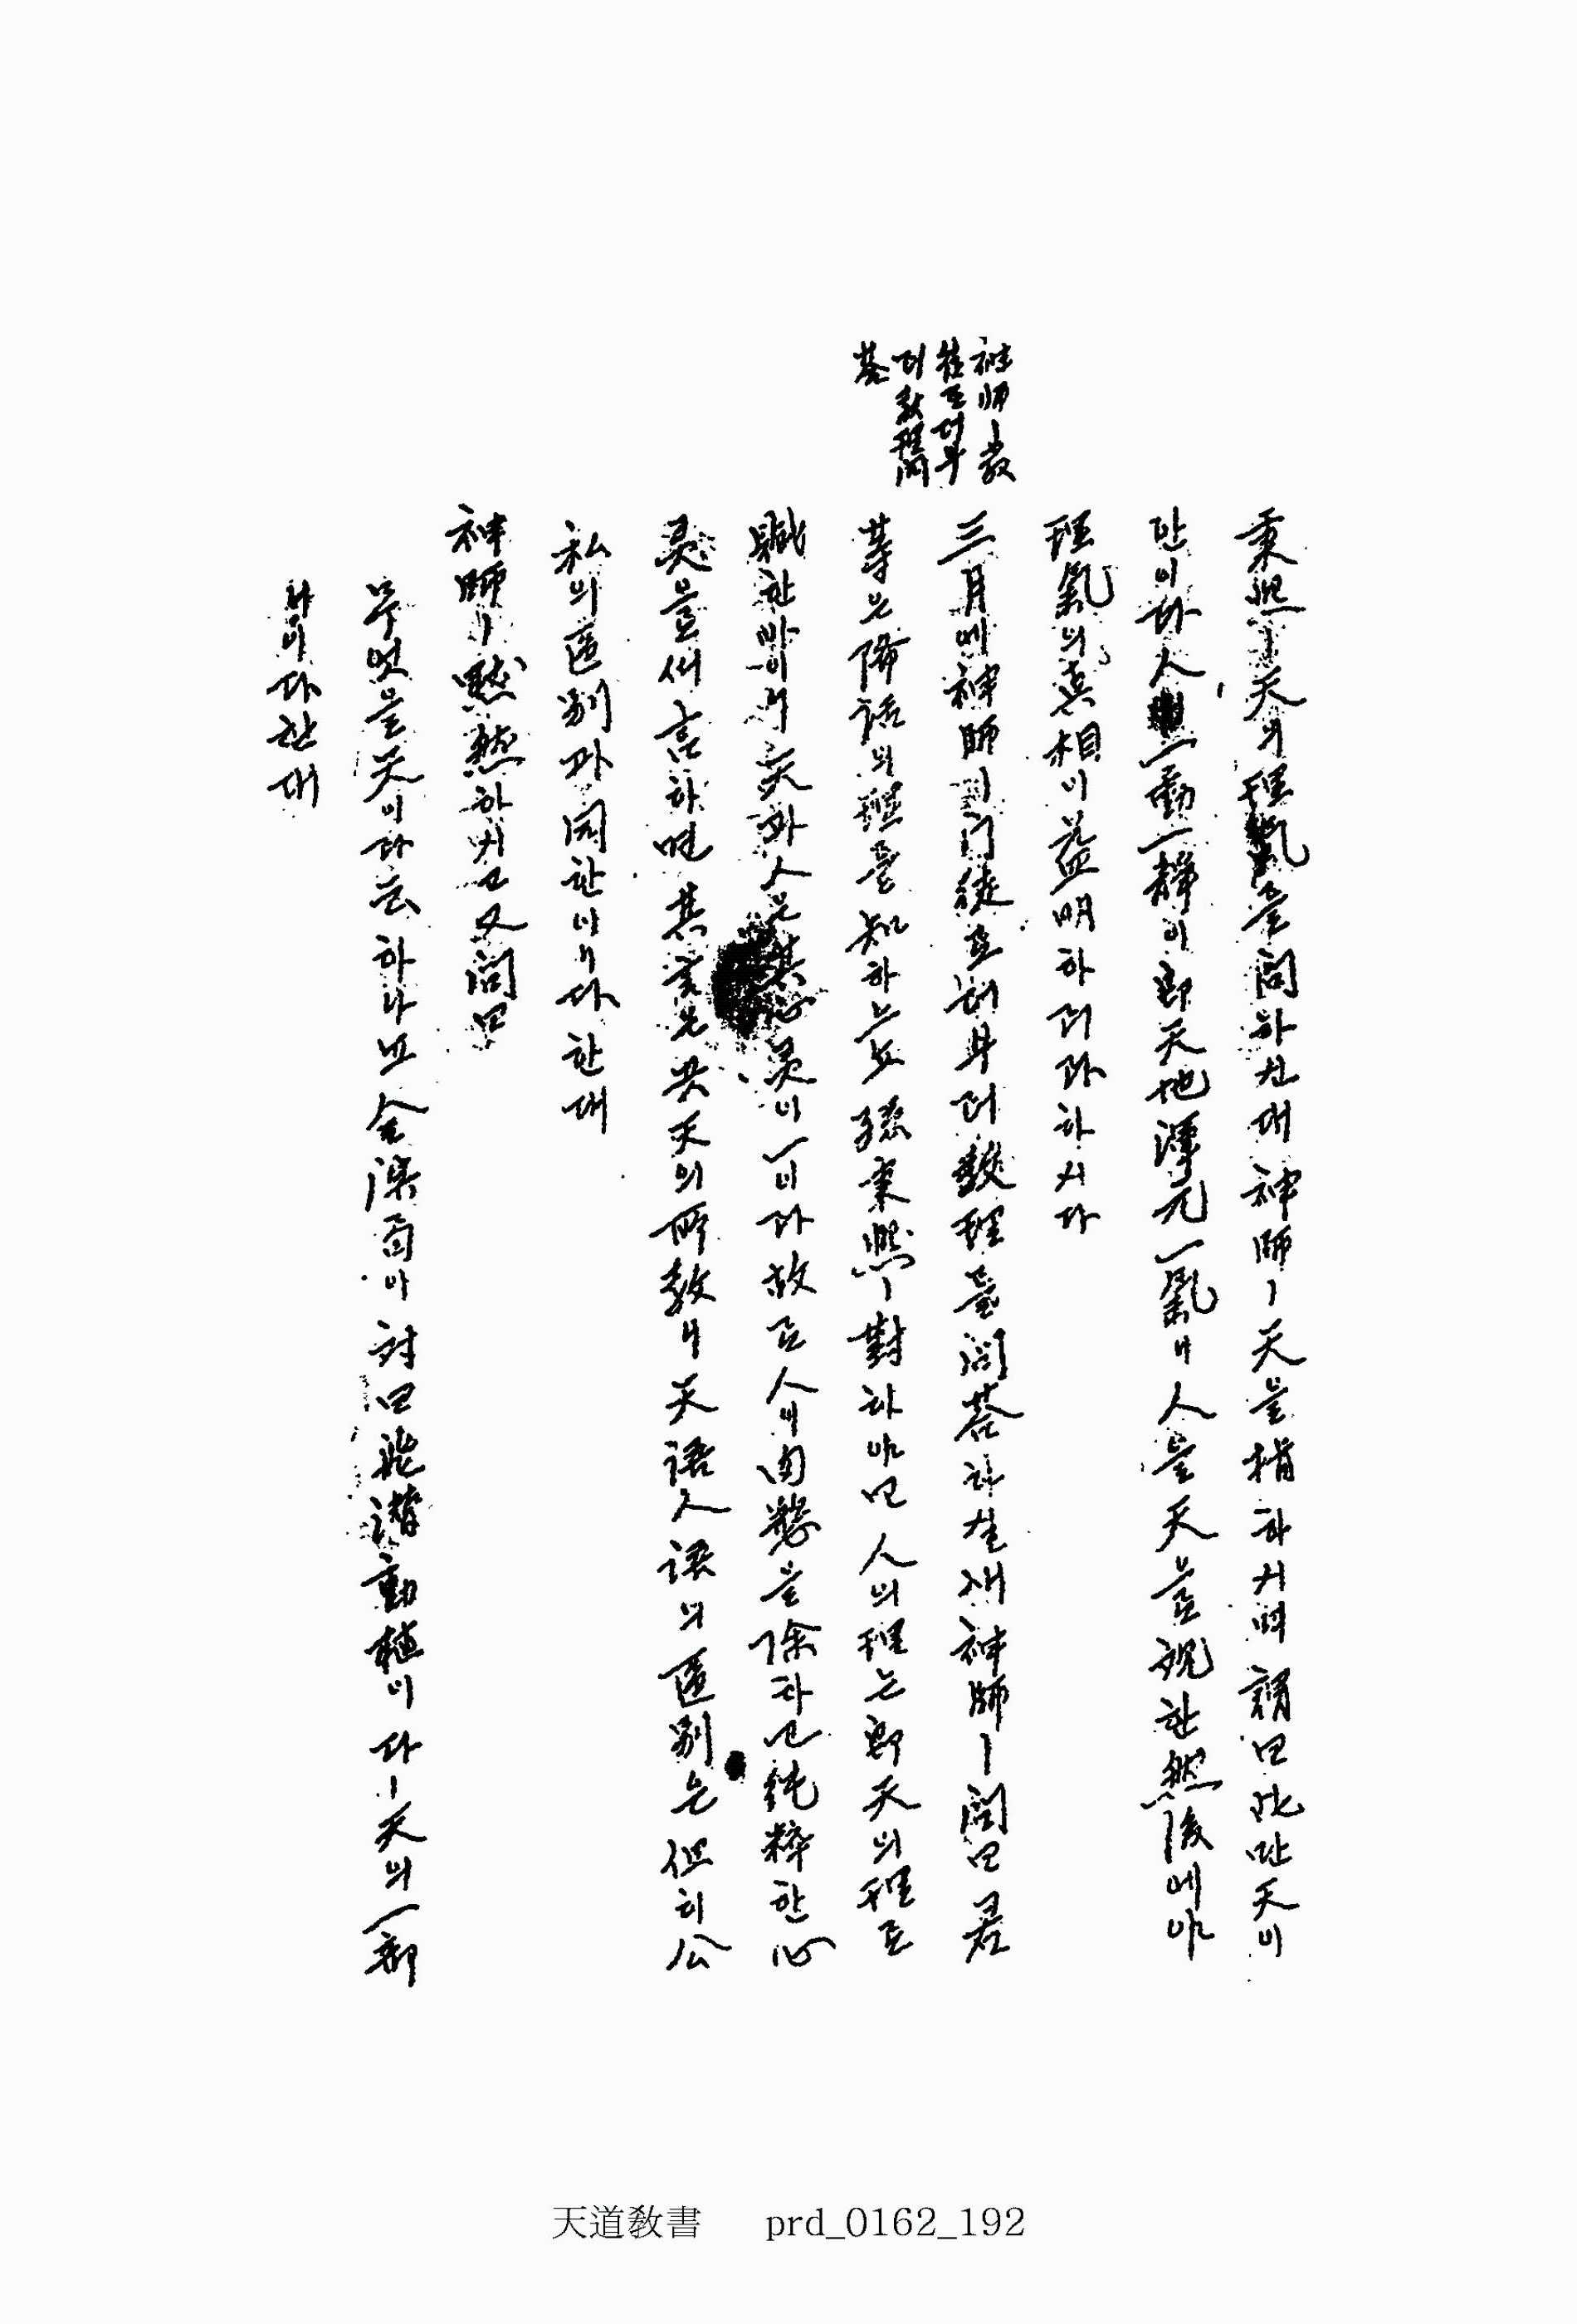 秉熙ㅣ天의理氣를問하신대神師ㅣ天을指하시며謂曰此만天이
안이라人의一動一靜이郞天地渾元一氣니人을天을로視한然後에야
理氣의眞相이益明하리라하시다
神師ㅣ敎
徒로더부
러敎理問
答
三月에神師ㅣ門徒로더부러敎理를問答하실새神師ㅣ問曰君
等은降話의理를知하는뇨孫秉熙ㅣ對하야曰人의理는郞天의理로
賦한바이니天과人은其心灵이一이라故로人이肉慾을除하고純粹한心
灵을써言하면其言은다天의所敎니天語人語의區別은但히公
私의區別과同한이니다한대
神師ㅣ默然하시고又問曰
무엇을天이라云하나뇨金演局이對曰飛潛動植이다ㅣ天의一部
니이다한대
天道敎書 prd_0162_192